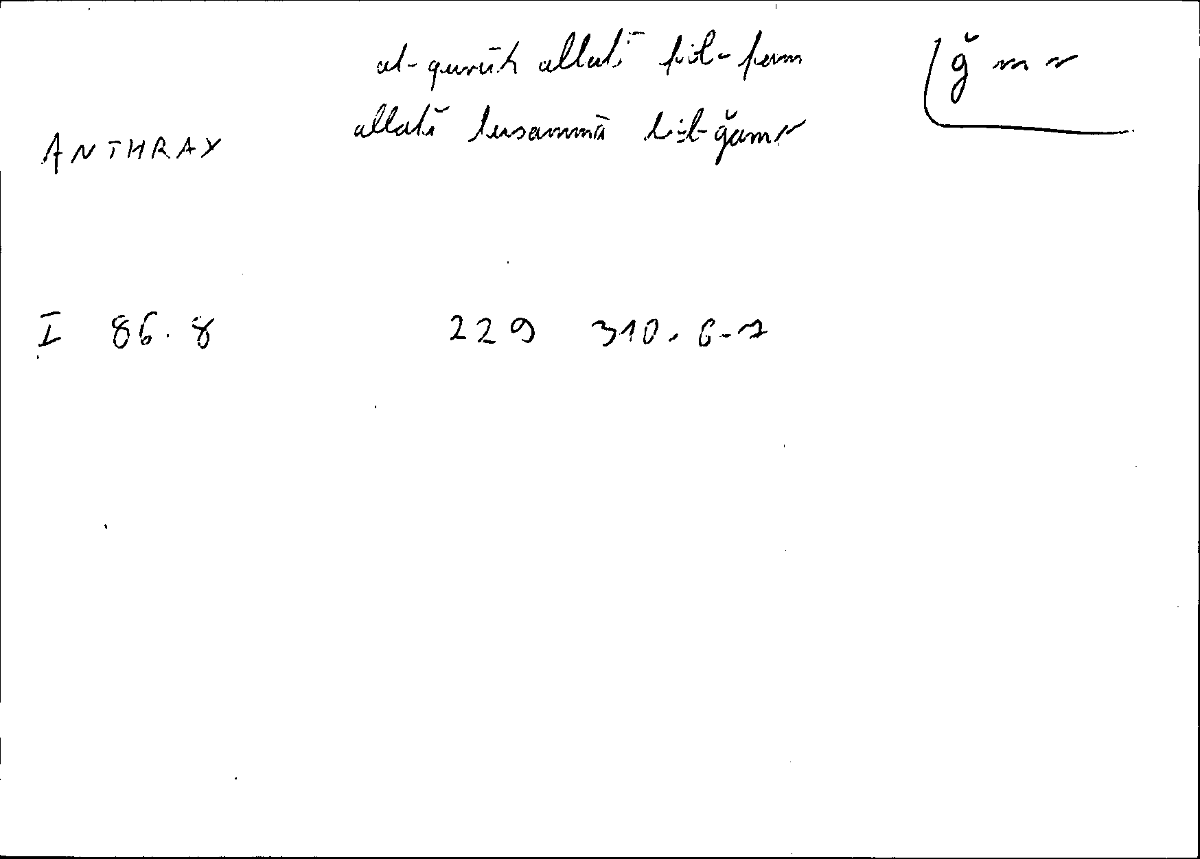 al-qurūḥ allatī fi l-fam
ğ m r
allatī tusammā bi-l-ğamr
ANTHRAX
I 86.8 229 310.6-7